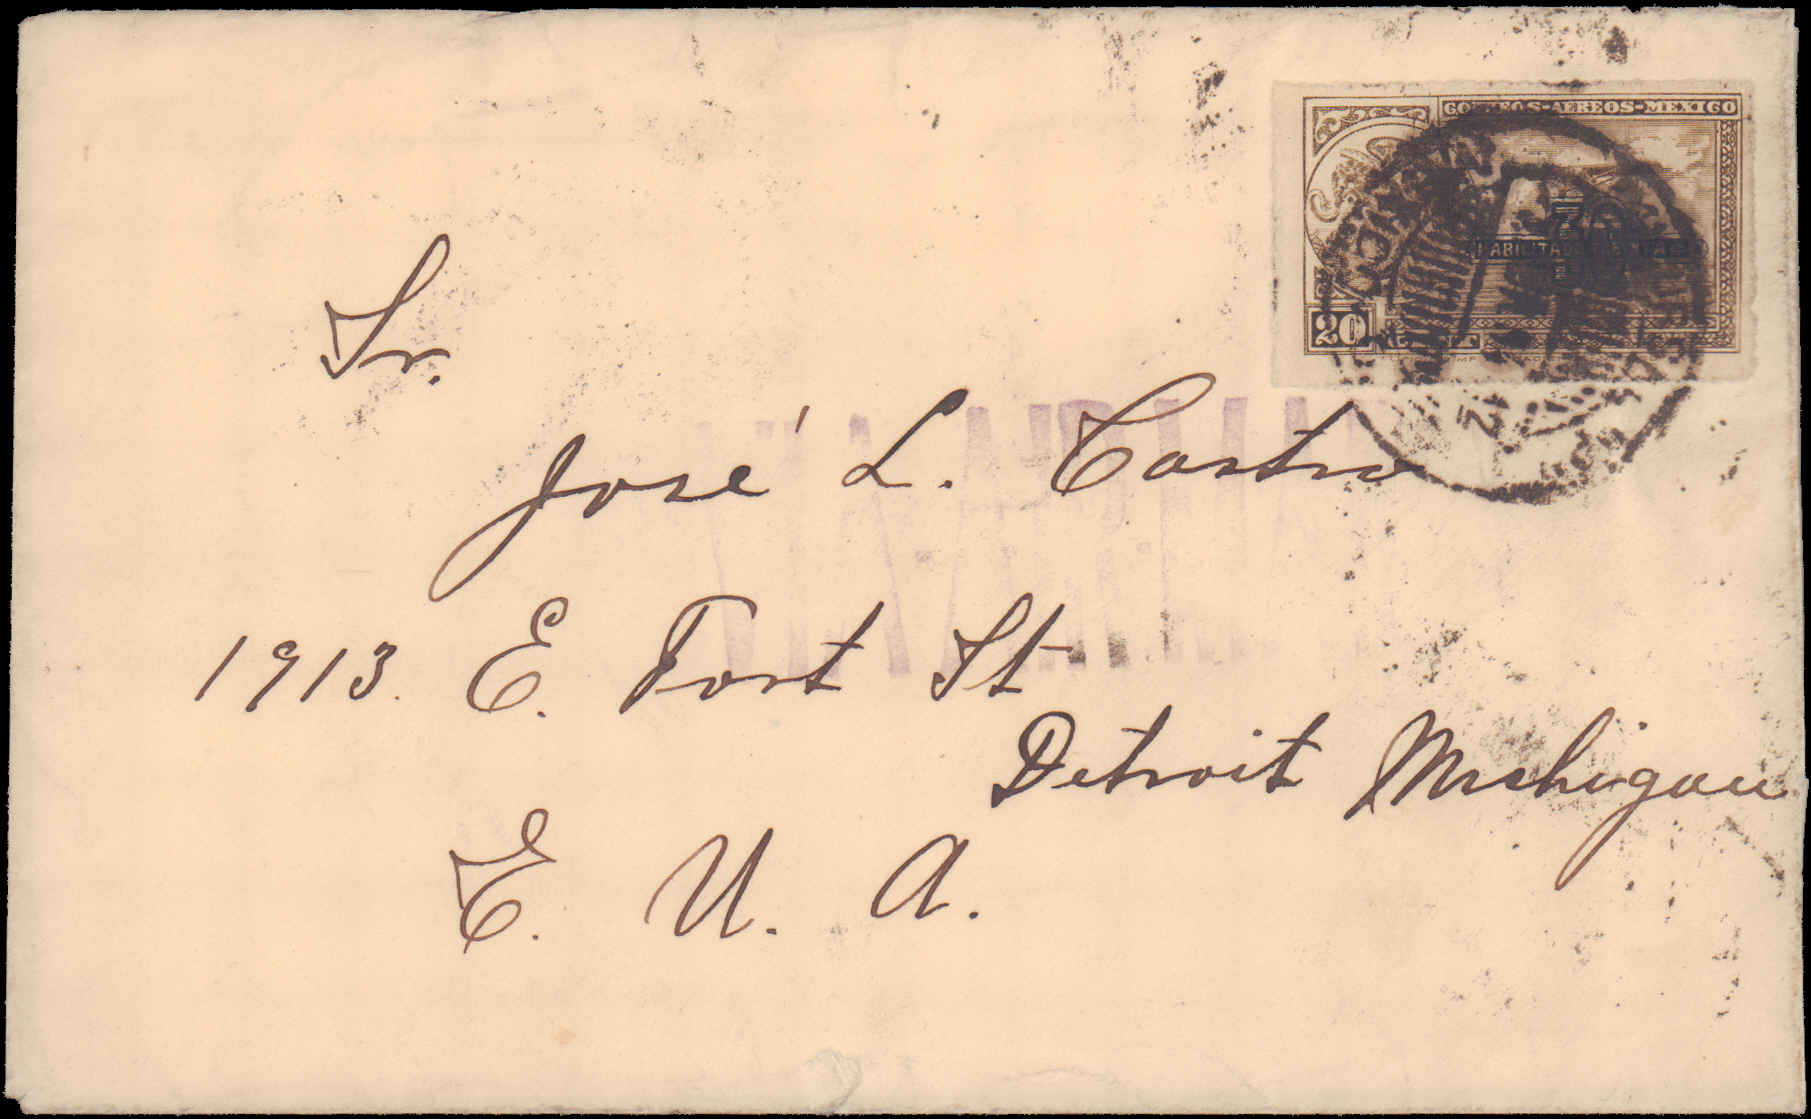 CORREOS-AEREOS-MEXICO
20
HABILITADO
Sr.
José L. Castro
1913. E. Fort St
Detroit Michigan
E. U. A.